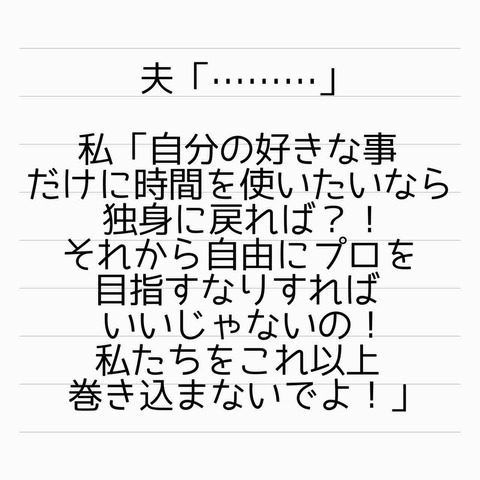 夫「………」
私「自分の好きな事
だけに時間を使いたいなら
独身に戻れば？！
それから自由にプロを
目指すなりすれば
いいじゃないの！
私たちをこれ以上
巻き込まないでよ！」